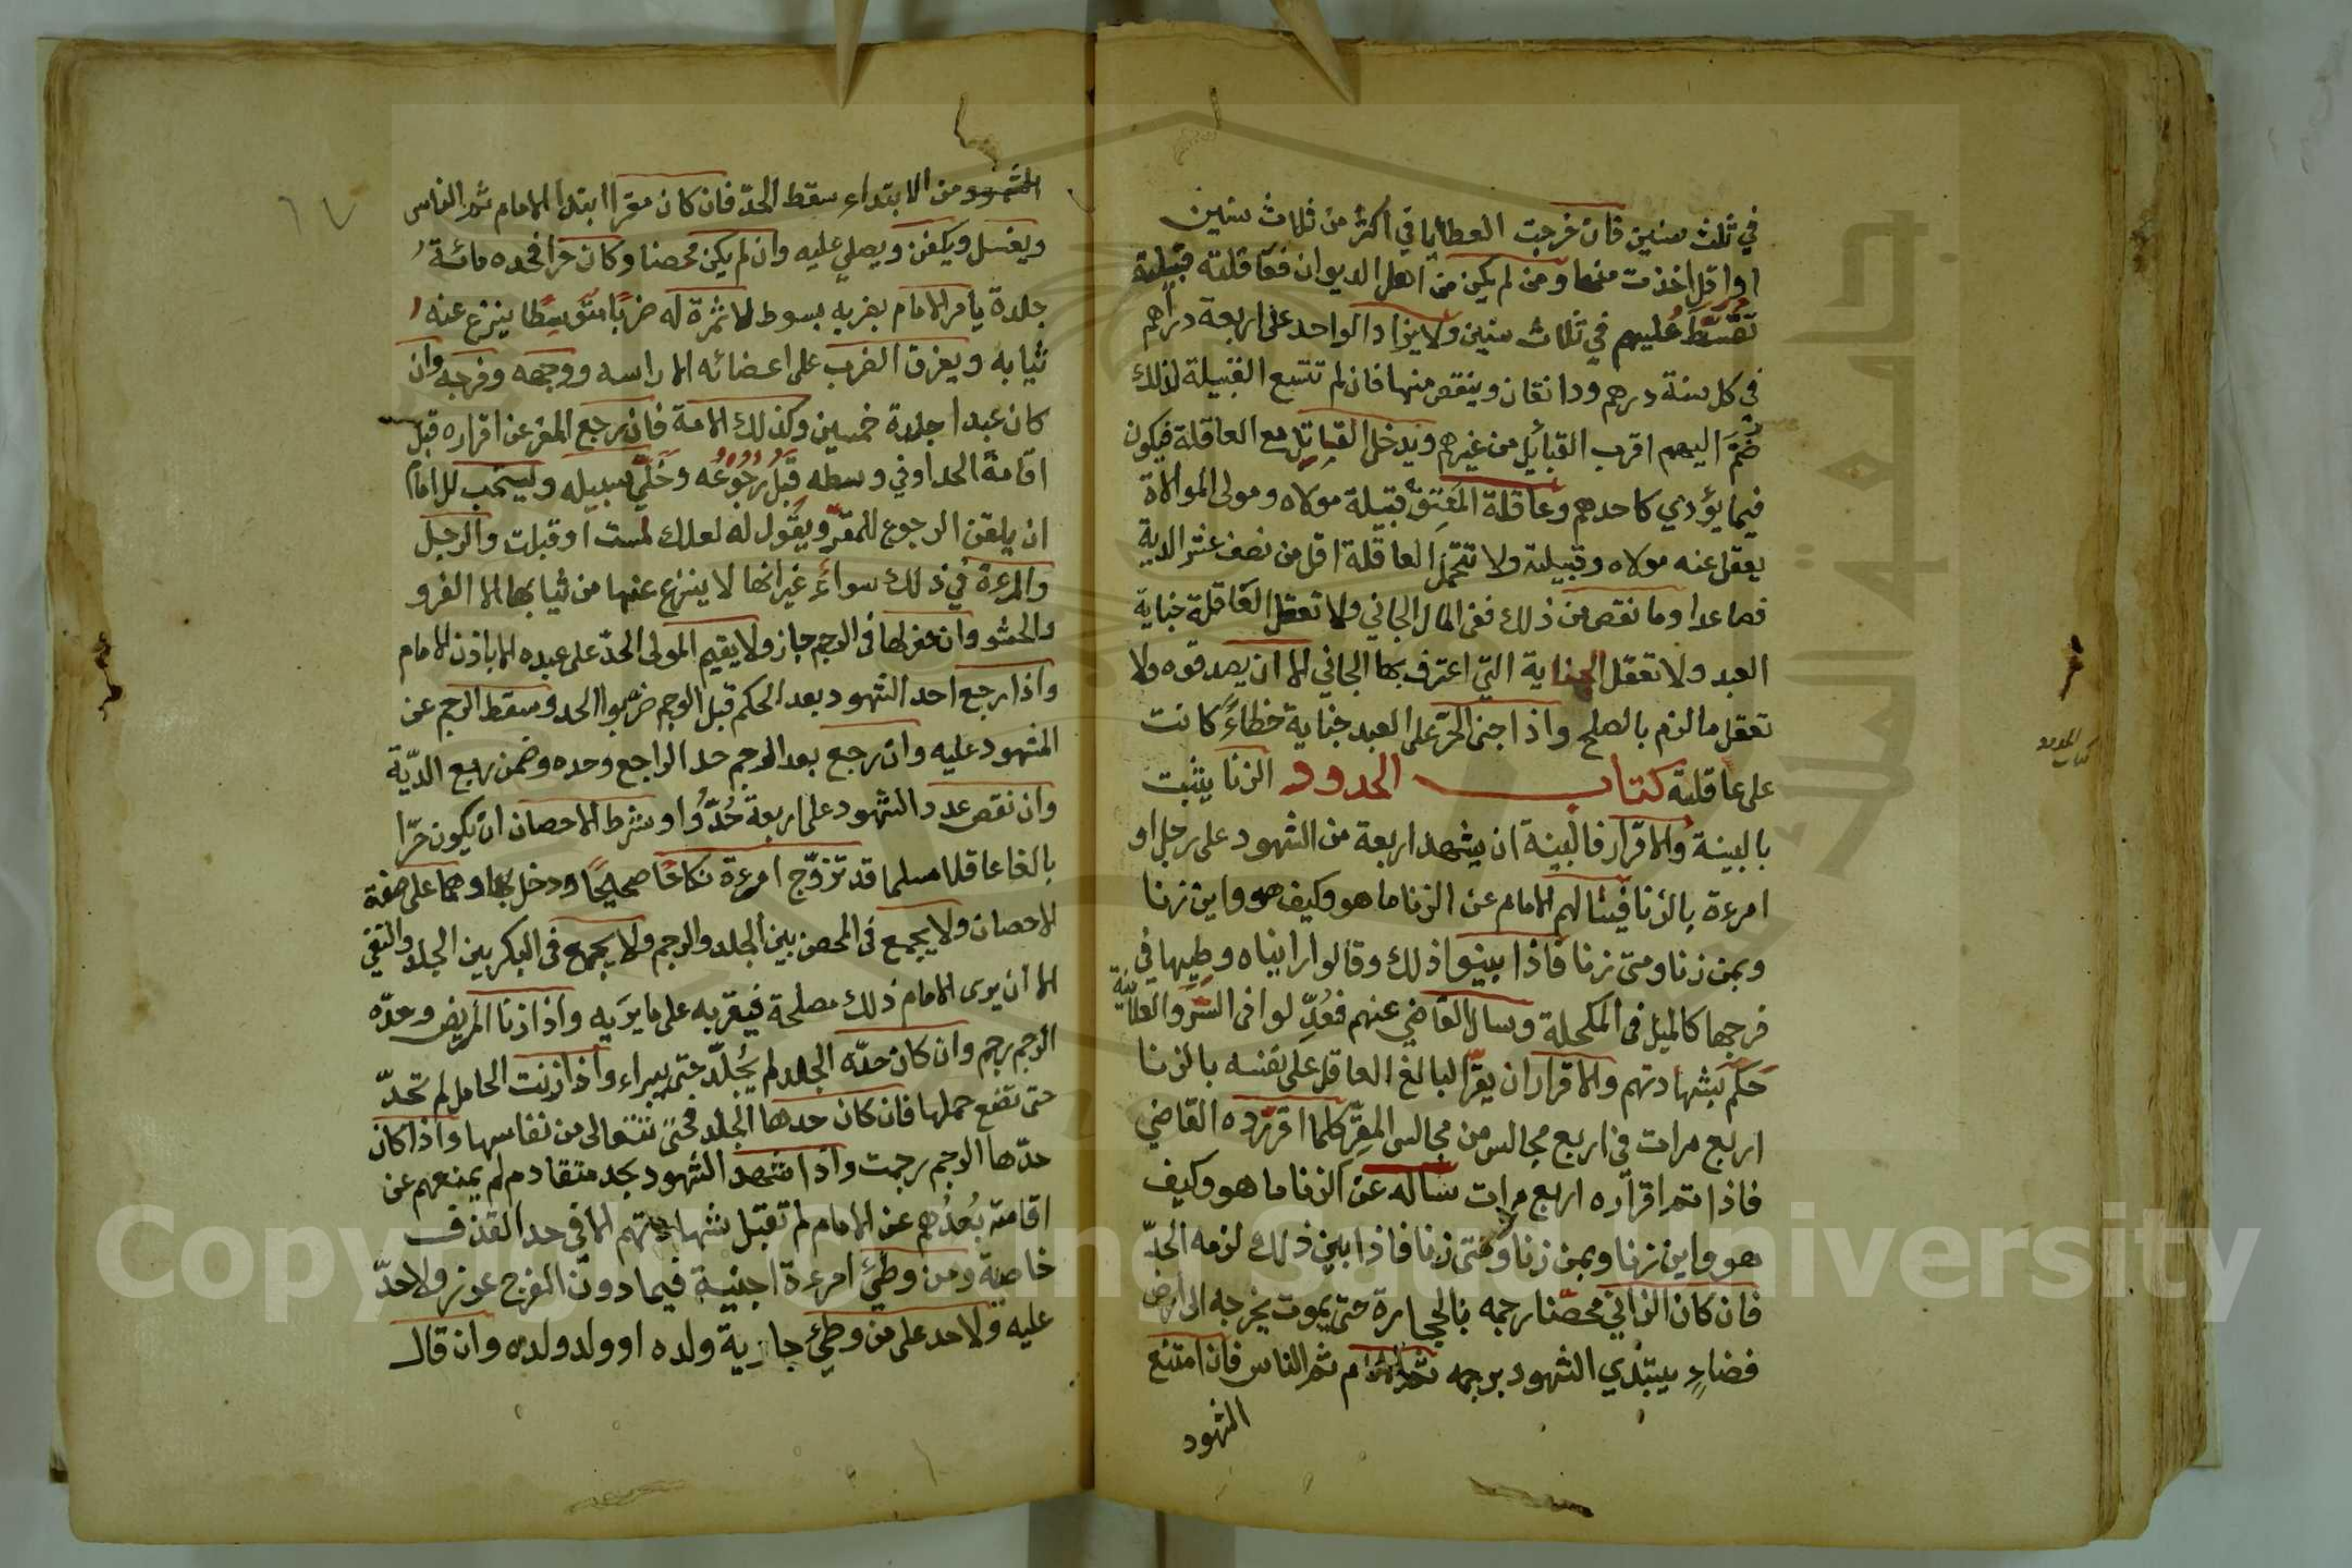 في ثلث سنين فان خرجت العطايا في اكثر من ثلاث سنين
او اقل اخذت منها ومن لم يكن من اهل الديوان فعاقلته قبيلته
تقسط عليهم في ثلاث سنين ولا يزاد الواحد على اربعة دراهم
في كل سنة درهم ودانقان وينقص منها فان لم تتسع القبيلة لذلك
ضم اليهم اقرب القبائل من غيرهم ويدخل القاتل مع العاقلة فيكون
فيما يؤدي كاحدهم وعاقلة المعتق قبيلة مولاه ومولى الموالاة
يعقل عنه مولاه وقبيلته ولا تتحمل العاقلة اقل من نصف عشر الدية
فصاعدا وما نقص من ذلك ففي المال الجاني ولا تعقل العاقلة جناية
العبد ولا تعقل الجناية التي اعترف بها الجاني الا ان يصدقوه ولا
تعقل ما لزم بالصلح واذا جنى الحر على العبد جناية خطاءً كانت
على عاقلته كتاب الحدود الزنا يثبت
بالبينة والاقرار فالبينة ان يشهد اربعة من الشهود على رجل او
امرءة بالزنا فيسالهم الامام عن الزنا ما هو وكيف هو واين زنا
وبمن زنا ومتى زنا فاذا بينوا ذلك وقالوا رايناه وطيها في
فرجها كالميل في المكحلة وسال القاضي عنهم فعُدِّلوا في السر والعلانية
حكم بشهادتهم والاقرار ان يقرّ البالغ العاقل على نفسه بالزنا
اربع مرات في اربع مجالس من مجالس المقِرّ كلما اقر ردّه القاضي
فاذا تم اقراره اربع مرات ساله عن الزنا ما هو وكيف
هو واين زنا وبمن زنا ومتى زنا فاذا بين ذلك لزمه الحدّ
فان كان الزاني محصنا رجمه بالحجارة حتى يموت يخرجه الى ارض
فضاءٍ يبتدي الشهود برجمه ثم الامام ثم الناس فان امتنع
الشهود
كتاب الحدود
الشهود من الابتداء سقط الحدّ فان كان مقرا ابتدا الامام ثم الناس
ويغسل ويكفن ويصلي عليه وان لم يكن محصنا وكان حرا فحده مائة
جلدة يأمر الامام بضربه بسوط لا ثمرة له ضربًا متوسطًا ينزع عنه
ثيابه ويفرق الضرب على اعضائه الا راسه ووجهه وفرجه وان
كان عبدا جلدة خمسين وكذلك الامة فان رجع المقر عن اقراره قبل
اقامة الحد او في وسطه قُبِلَ رُجُوعُه وخَلّي سبيله ويستحب للامام
ان يلقن الرجوع للمقرّ ويقول له لعلك لمست او قبلت والرجل
والمرءة في ذلك سواءً غير انها لا ينزع عنها من ثيابها الا الفرو
والحشو وان حفر لها في الرجم جاز ولا يقيم المولى الحدّ على عبده الا باذن الامام
واذا رجع احد الشهود بعد الحكم قبل الرجم ضربوا الحد وسقط الرجم عن
المشهود عليه وان رجع بعد الرجم حد الراجع وحده وضمن ربع الديّة
وان نقص عدد الشهود على اربعة حُدُّوا وشرط الاحصان ان يكون حرّا
بالغا عاقلا مسلما قد تزوّج امرءة نكاحًا صحيحًا ودخل بها وهما على صفة
الاحصان ولا يجمع في المحصن بين الجلد والرجم ولا يجمع في البكر بين الجلد والنفي
الا ان يرى الامام ذلك مصلحة فيغر به على ما يَريه واذا زنا المريض وحدّه
الرجم رجم وان كان حدّه الجلد لم يُجلد حتى يبراء واذا زنت الحامل لم تحدّ
حتى تضع حملها فان كان حدها الجلد فحتى تتعالى من نفاسها واذا كان
حدّها الرجم رجمت واذا شهد الشهود بحد متقادم لم يمنعهم عن
اقامته بُعدُهم عن الامام لم تقبل شهادتهم الا في حد القذف
خاصة ومن وطئ امرءة اجنبية فيما دون الفرج عزر ولا حدّ
عليه ولا حد على من وطئ جارية ولده او ولد ولده وان قال
١٧
Copyright © King Saud University